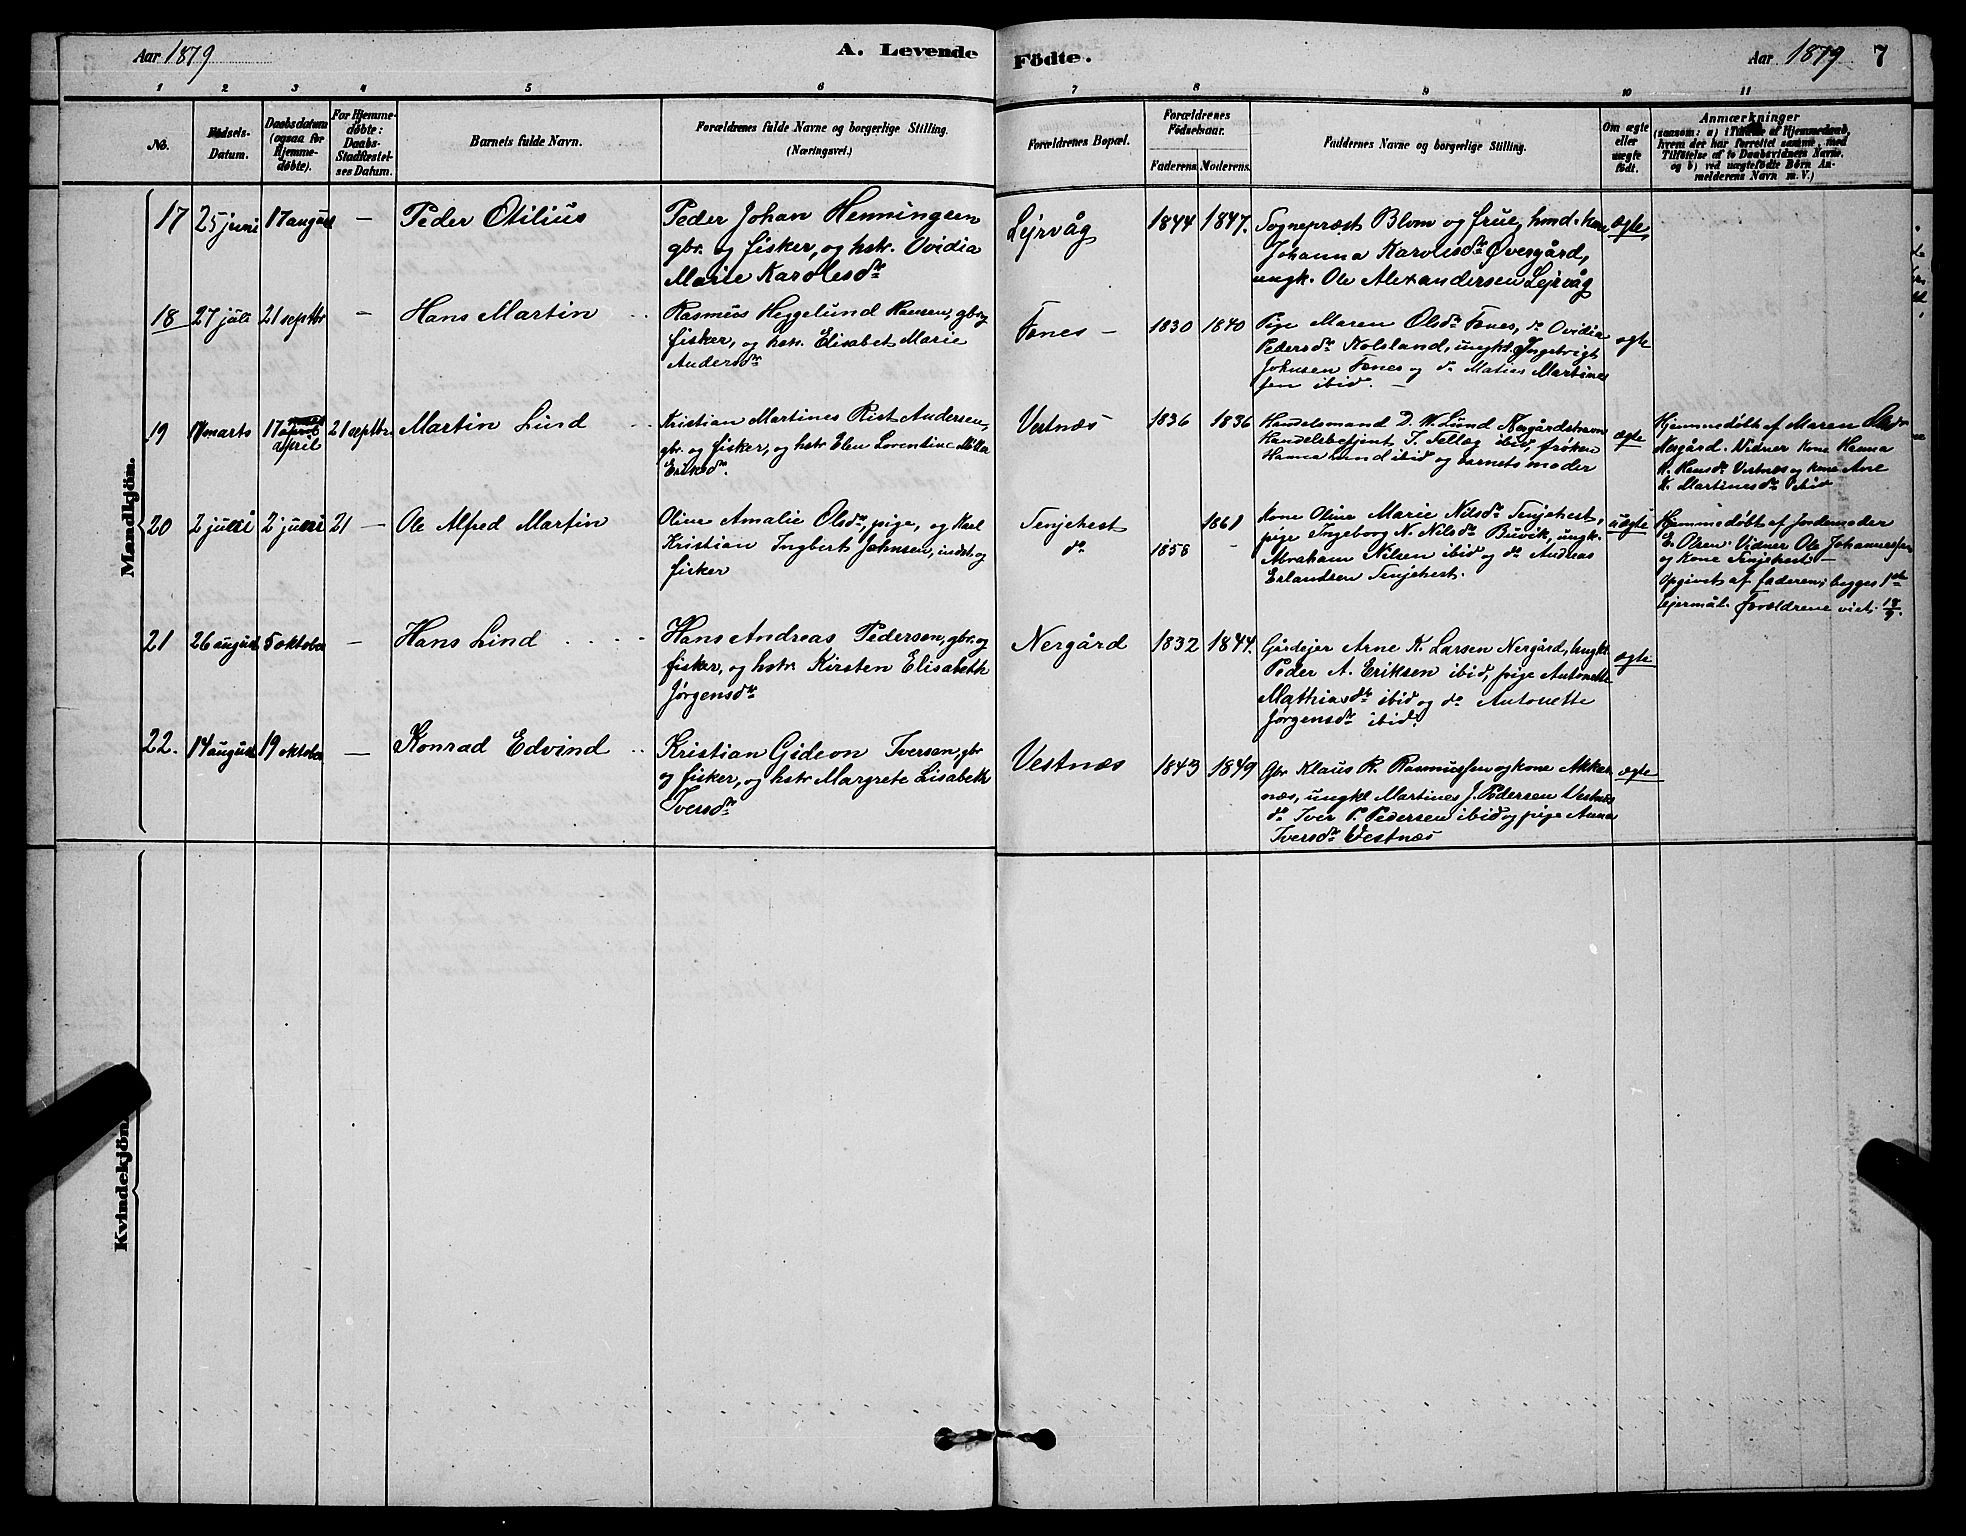 Aar 1879
A. Levende
Födte.
Aar 1879
7
1 2 3 4 5 6 7 8 9 10 11
No.
Fødsels-
Datum.
Daabsdatum
(ogsaa for
Hjemme-
døbte).
For Hjemme-
døbte:
Daabs-
Stadfæstel-
ses Datum.
Barnets fulde Navn.
Forældrenes fulde Navne og borgerlige Stilling.
(Næringsvei.)
Forældrenes Bopæl.
Forældrenes
Fødselsaar.
Faderens. Moderens.
Faddernes Navne og borgerlige Stilling.
Om ægte
eller
uægte
født.
Anmærkninger
(saasom: a) i Tilfælde af Hjemmedaab,
hvem der har forrettet samme, med
Tilføielse af to Daabsvidners Navne,
og b) ved uægtefødte Børn An-
melderens Navn m. V.)
Mandkjön.
17 25 juni 17 august — Peder Otilius
Peder Johan Henningsen
gbr. og fisker, og hstr. Ovidia
Marie Karolesdr
Lejrvåg
1844 1847.
Sognepræst Blom og frue, hmd.kone
Johanna Karolisdr Øvergård,
ungk. Ole Alexandersen Lejrvåg
ægte
18 27 juli 21 septbr — Hans Martin
Rasmus Heggelund Hansen, gbr og
fisker, og hstr. Elisabet Marie
Andersdr
Fones —
1830 1840
Pige Maren Olsdr Fones, do Ovidia
Pedersdr Kolsland, ungkl. Ingebrigt
Johnsen Fones og do Matias Martines
sen ibid. —
ægte
19 17 marts 17 april
april
21 septbr. Martin Lind
Kristian Martines Rist Andersen,
gbr. og fisker, og hstr Elen Lorentine Milla
Eriksdr.
Vestnæs
1836 1836
Handelsmand D. W. Lund Nergårdshavn
Handelsbetjent J. Fellag ibid, frøken
Hanna Lund ibid og barnets moder
ægte
Hjemmedøbt af Maren Olsdr
Nergård. Vidner kone Hanna
H. Hansdr Vestnæs og kone Ane
K. Martinesdr ibid
20 2 juni 2 juni 21 — Ole Alfred Martin
Oline Amalie Olsdr, pige, og Karl
Kristian Ingbert Johnsen, indst. og
fisker
Senjehest
do
1861
1858 —
Kone Oline Marie Nilsdr Senjehest,
pige Ingeborg N. Nilsdr Buvik, ungk.
Abraham Nilsen ibid og do Andreas
Erlandsen Senjehest.
uægte
Hjemmedøbt af Jordemoder
E. Olsen. Vidner Ole Johannessen
og kone Senjehest —
opgivet af faderen; begges 1ste
Lejermål. Forældrene viet 18/9.
21 26 august 5 oktober — Hans Lind
Hans Andreas Pedersen, gbr. og
fisker, og hstr. Kirsten Elisabeth
Jørgensdr
Nergård
1832 1844.
Gårdejer Arne K. Larsen Nergård, ungk.
Peder A. Eriksen ibid, pige Antonette
Mathiasdr ibid og do Antonette
Jørgensdr ibid.
ægte
22. 14 august 19 oktober — Konrad Edvind
Kristian Gideon Iversen, gbr
og fisker, og hstr Margrete Lisabeth
Iversdr
Vestnæs
1843 1849
Gbr Klaus R. Rasmussen og kone Akker
næs, ungkl Martines J. Pedersen Vestnæs
do Iver P. Pedersen ibid og pige Anna
Iversdr Vestnæs
ægte
Kvindekjön.